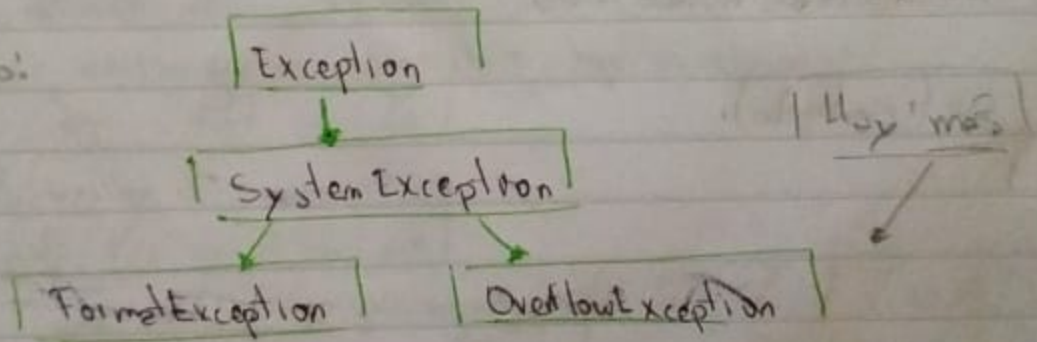 Exception
Hay más
SystemException
FormatException
OverflowException